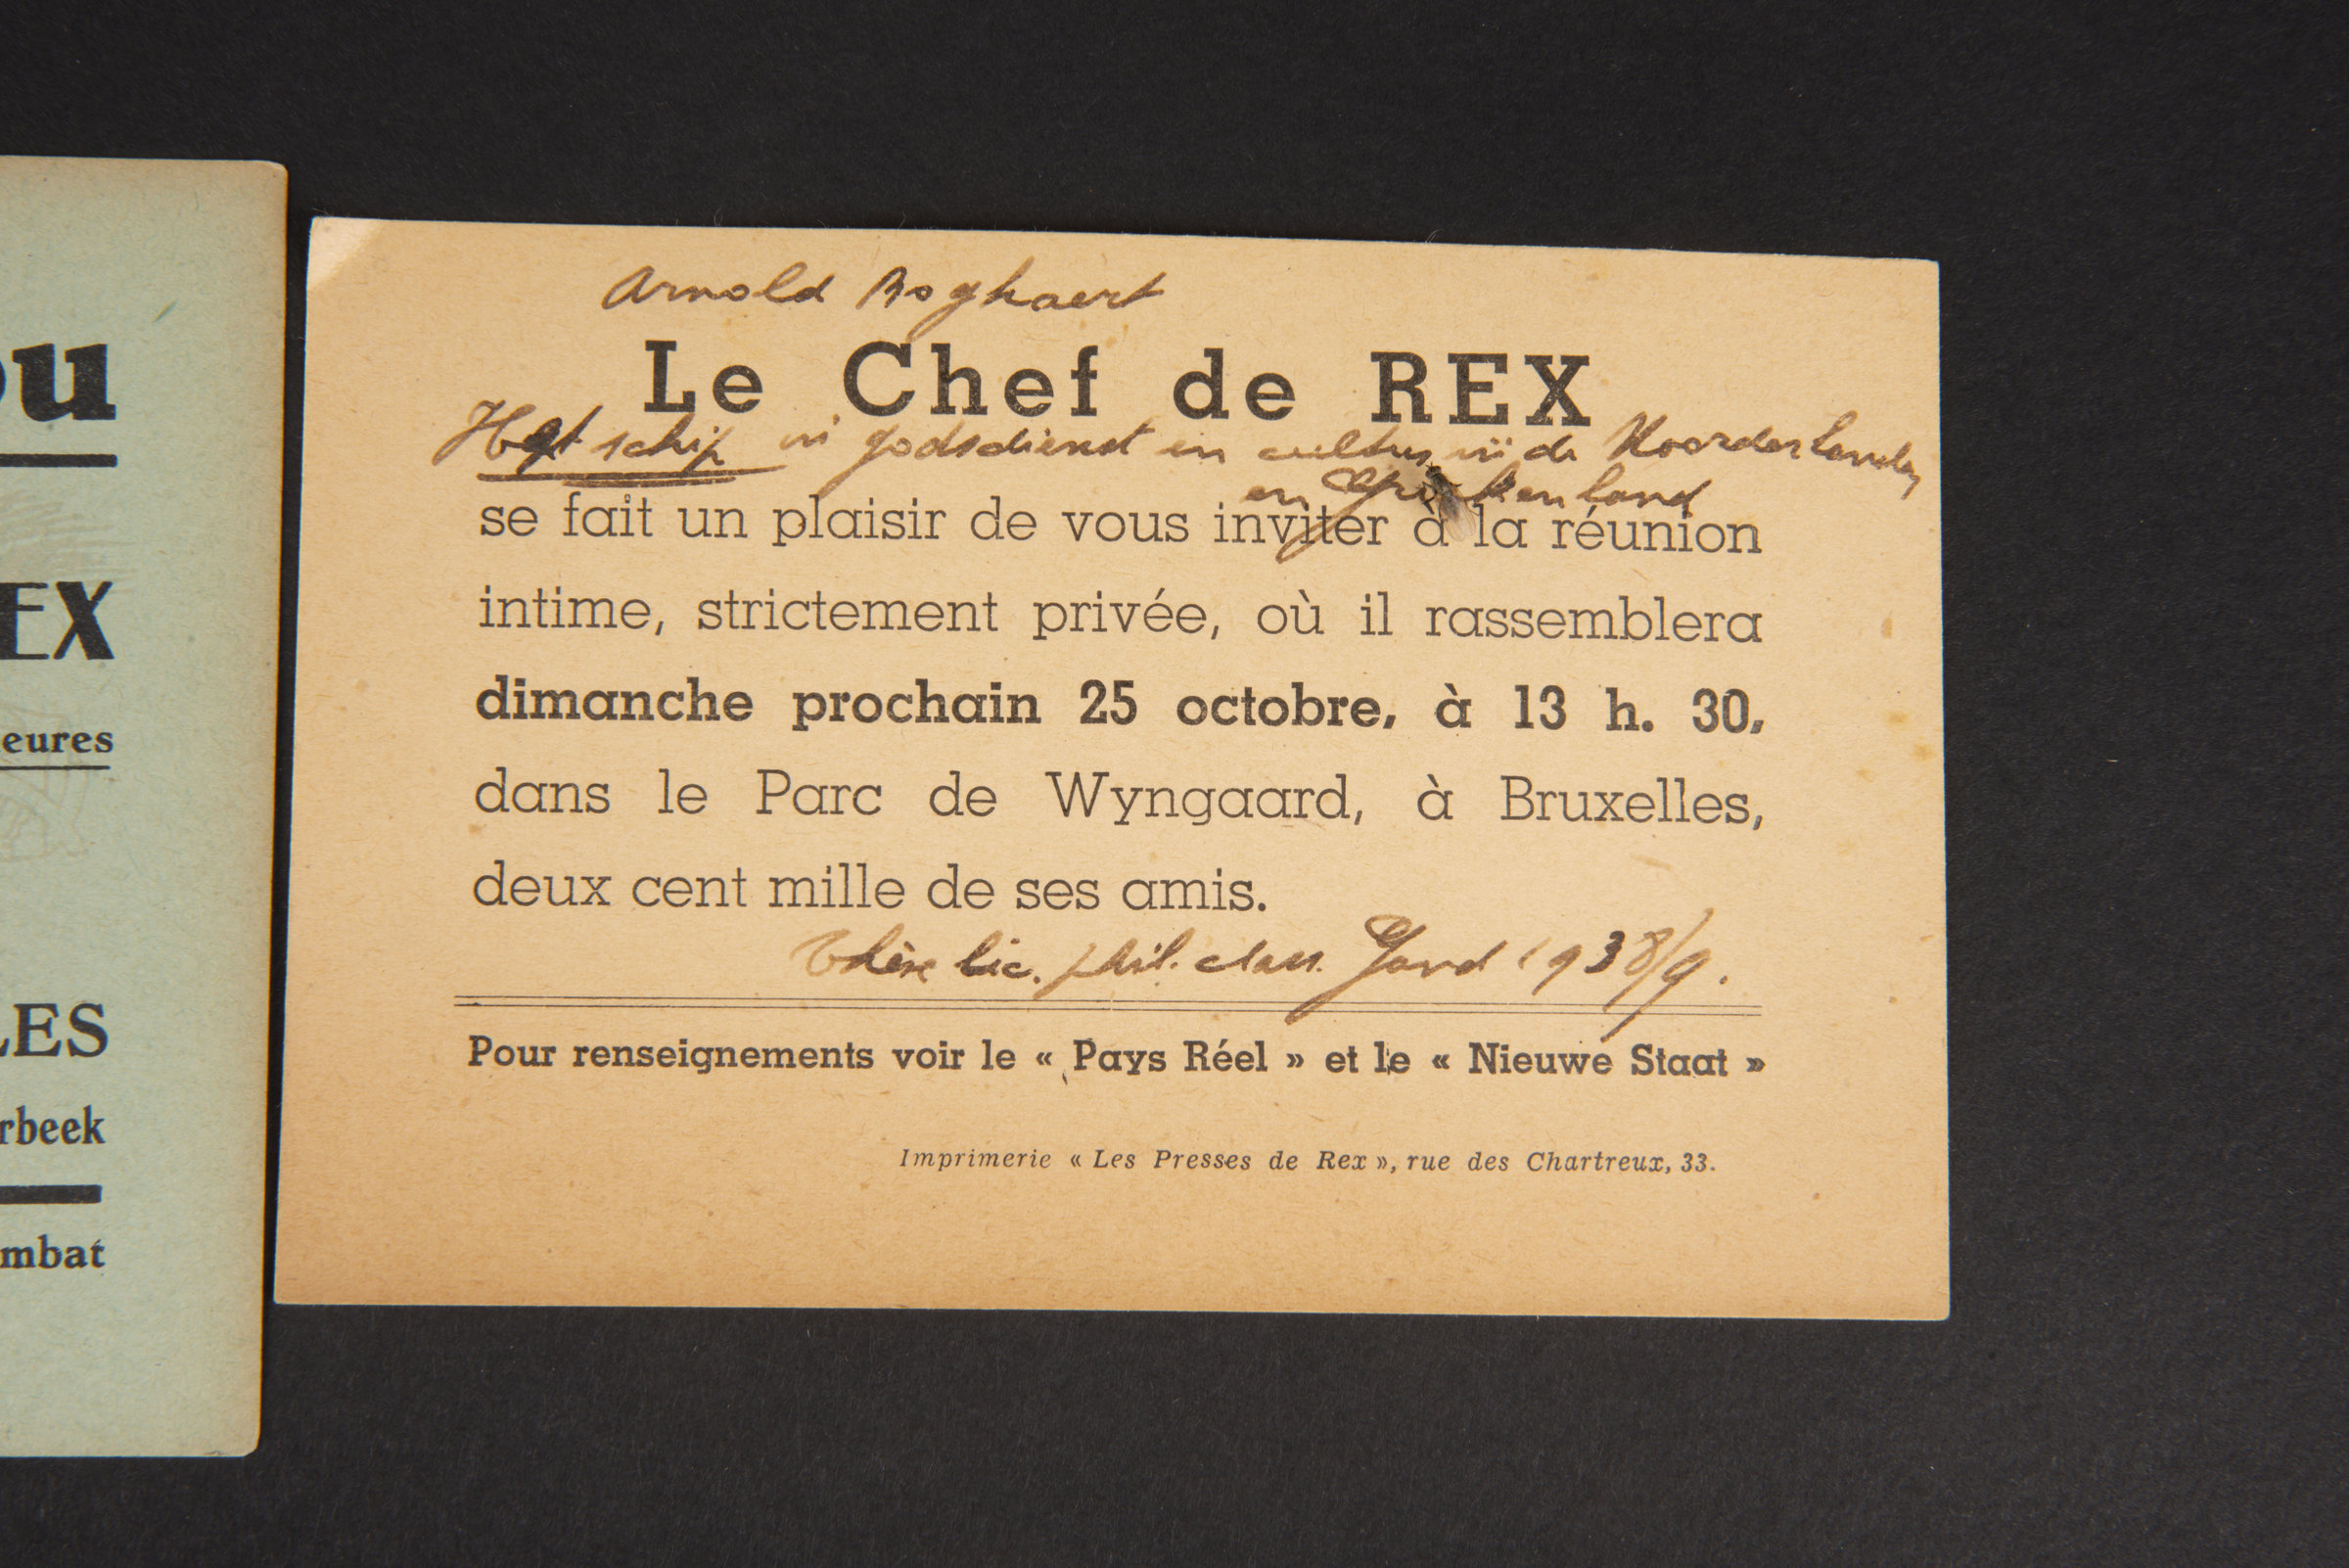 ou
EX
eures
LES
rbeek
mbat
Arnold Boghaert
Le Chef de REX
Het schip in godsdienst en cultus in de Noorderlanden
en Griekenland
se fait un plaisir de vous inviter à la réunion
intime, strictement privée, où il rassemblera
dimanche prochain 25 octobre, à 13 h. 30,
dans le Parc de Wyngaard, à Bruxelles,
deux cent mille de ses amis.
Thèse lic. phil. class. Gand 1938/9.
Pour renseignements voir le « Pays Réel » et le « Nieuwe Staat »
Imprimerie « Les Presses de Rex », rue des Chartreux, 33.